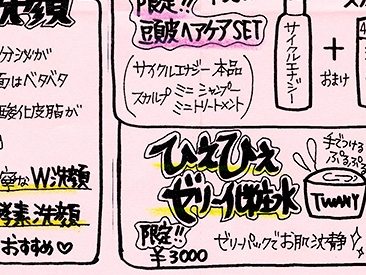 洗顔
カサツキが
面はベタベタ
酸化皮脂が
寧なW洗顔
酵素洗顔
おすすめ♡
限定!!
頭皮ヘアケアSET
サイクルエナジー本品
スカルプ ミニシャンプー
ミニトリートメント
サイクルエナジー
+
おまけ
ひえひえ
ゼリー化粧水
限定!!
¥3000
手でつける
ぷるぷる
TWANY
ゼリーパックでお肌沈静